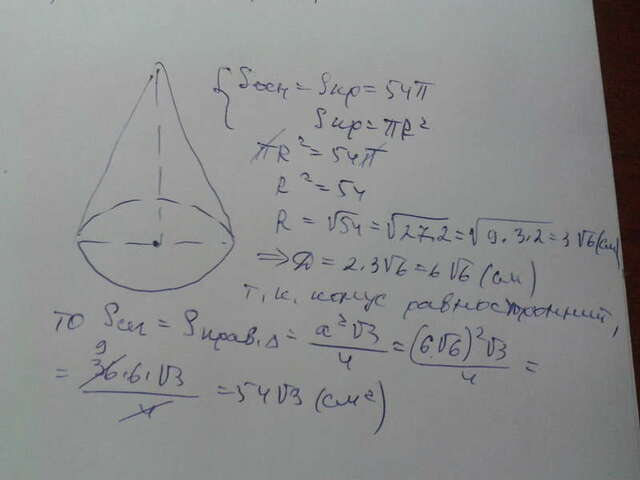 { Sосн = Sкр = 54π
Sкр = πR²
πR² = 54π
R² = 54
R = √54 = √27.2 = √9.3.2 = 3√6 (см)
⇒ D = 2.3√6 = 6√6 (см)
т.к. конус равносторонний,
то Sсеч = Sправ.Δ = a²√3/4 = (6√6)²√3/4 =
= 9 36.6.√3/4 = 54√3 (см²)